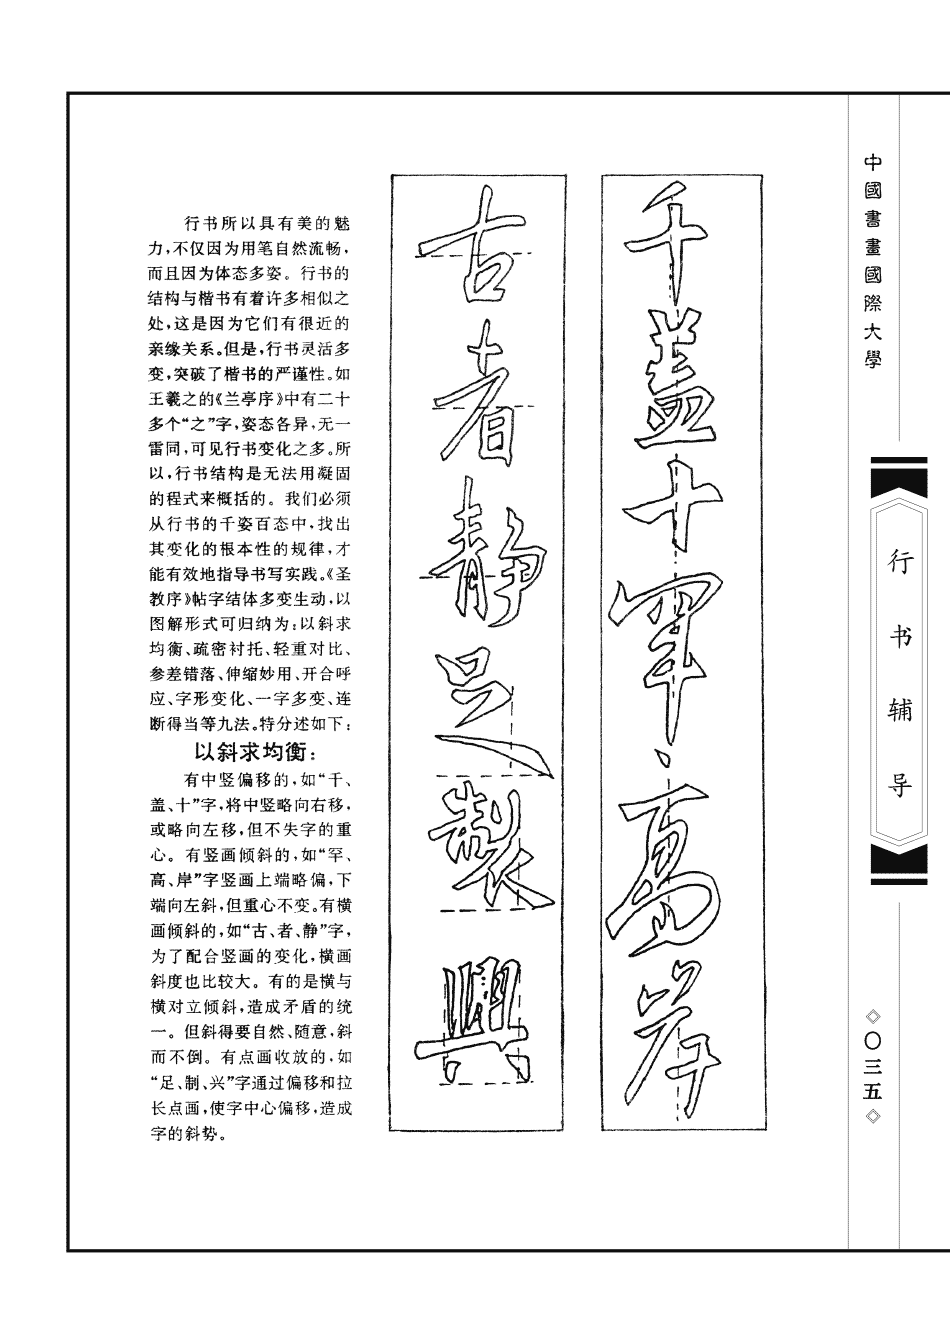 行书所以具有美的魅
力,不仅因为用笔自然流畅,
而且因为体态多姿。行书的
结构与楷书有着许多相似之
处,这是因为它们有很近的
亲缘关系。但是,行书灵活多
变,突破了楷书的严谨性。如
王羲之的《兰亭序》中有二十
多个“之”字,姿态各异,无一
雷同,可见行书变化之多。所
以,行书结构是无法用凝固
的程式来概括的。我们必须
从行书的千姿百态中,找出
其变化的根本性的规律,才
能有效地指导书写实践。《圣
教序》帖字结体多变生动,以
图解形式可归纳为:以斜求
均衡、疏密衬托、轻重对比、
参差错落、伸缩妙用、开合呼
应、字形变化、一字多变、连
断得当等九法。特分述如下:
以斜求均衡:
有中竖偏移的,如“千、
盖、十”字,将中竖略向右移,
或略向左移,但不失字的重
心。有竖画倾斜的,如“罕、
高、岸”字竖画上端略偏,下
端向左斜,但重心不变。有横
画倾斜的,如“古、者、静”字,
为了配合竖画的变化,横画
斜度也比较大。有的是横与
横对立倾斜,造成矛盾的统
一。但斜得要自然、随意,斜
而不倒。有点画收放的,如
“足、制、兴”字通过偏移和拉
长点画,使字中心偏移,造成
字的斜势。
古者静足製興
千盖十罕、高岸
中國書畫國際大學
行书辅导
◇〇三五◇